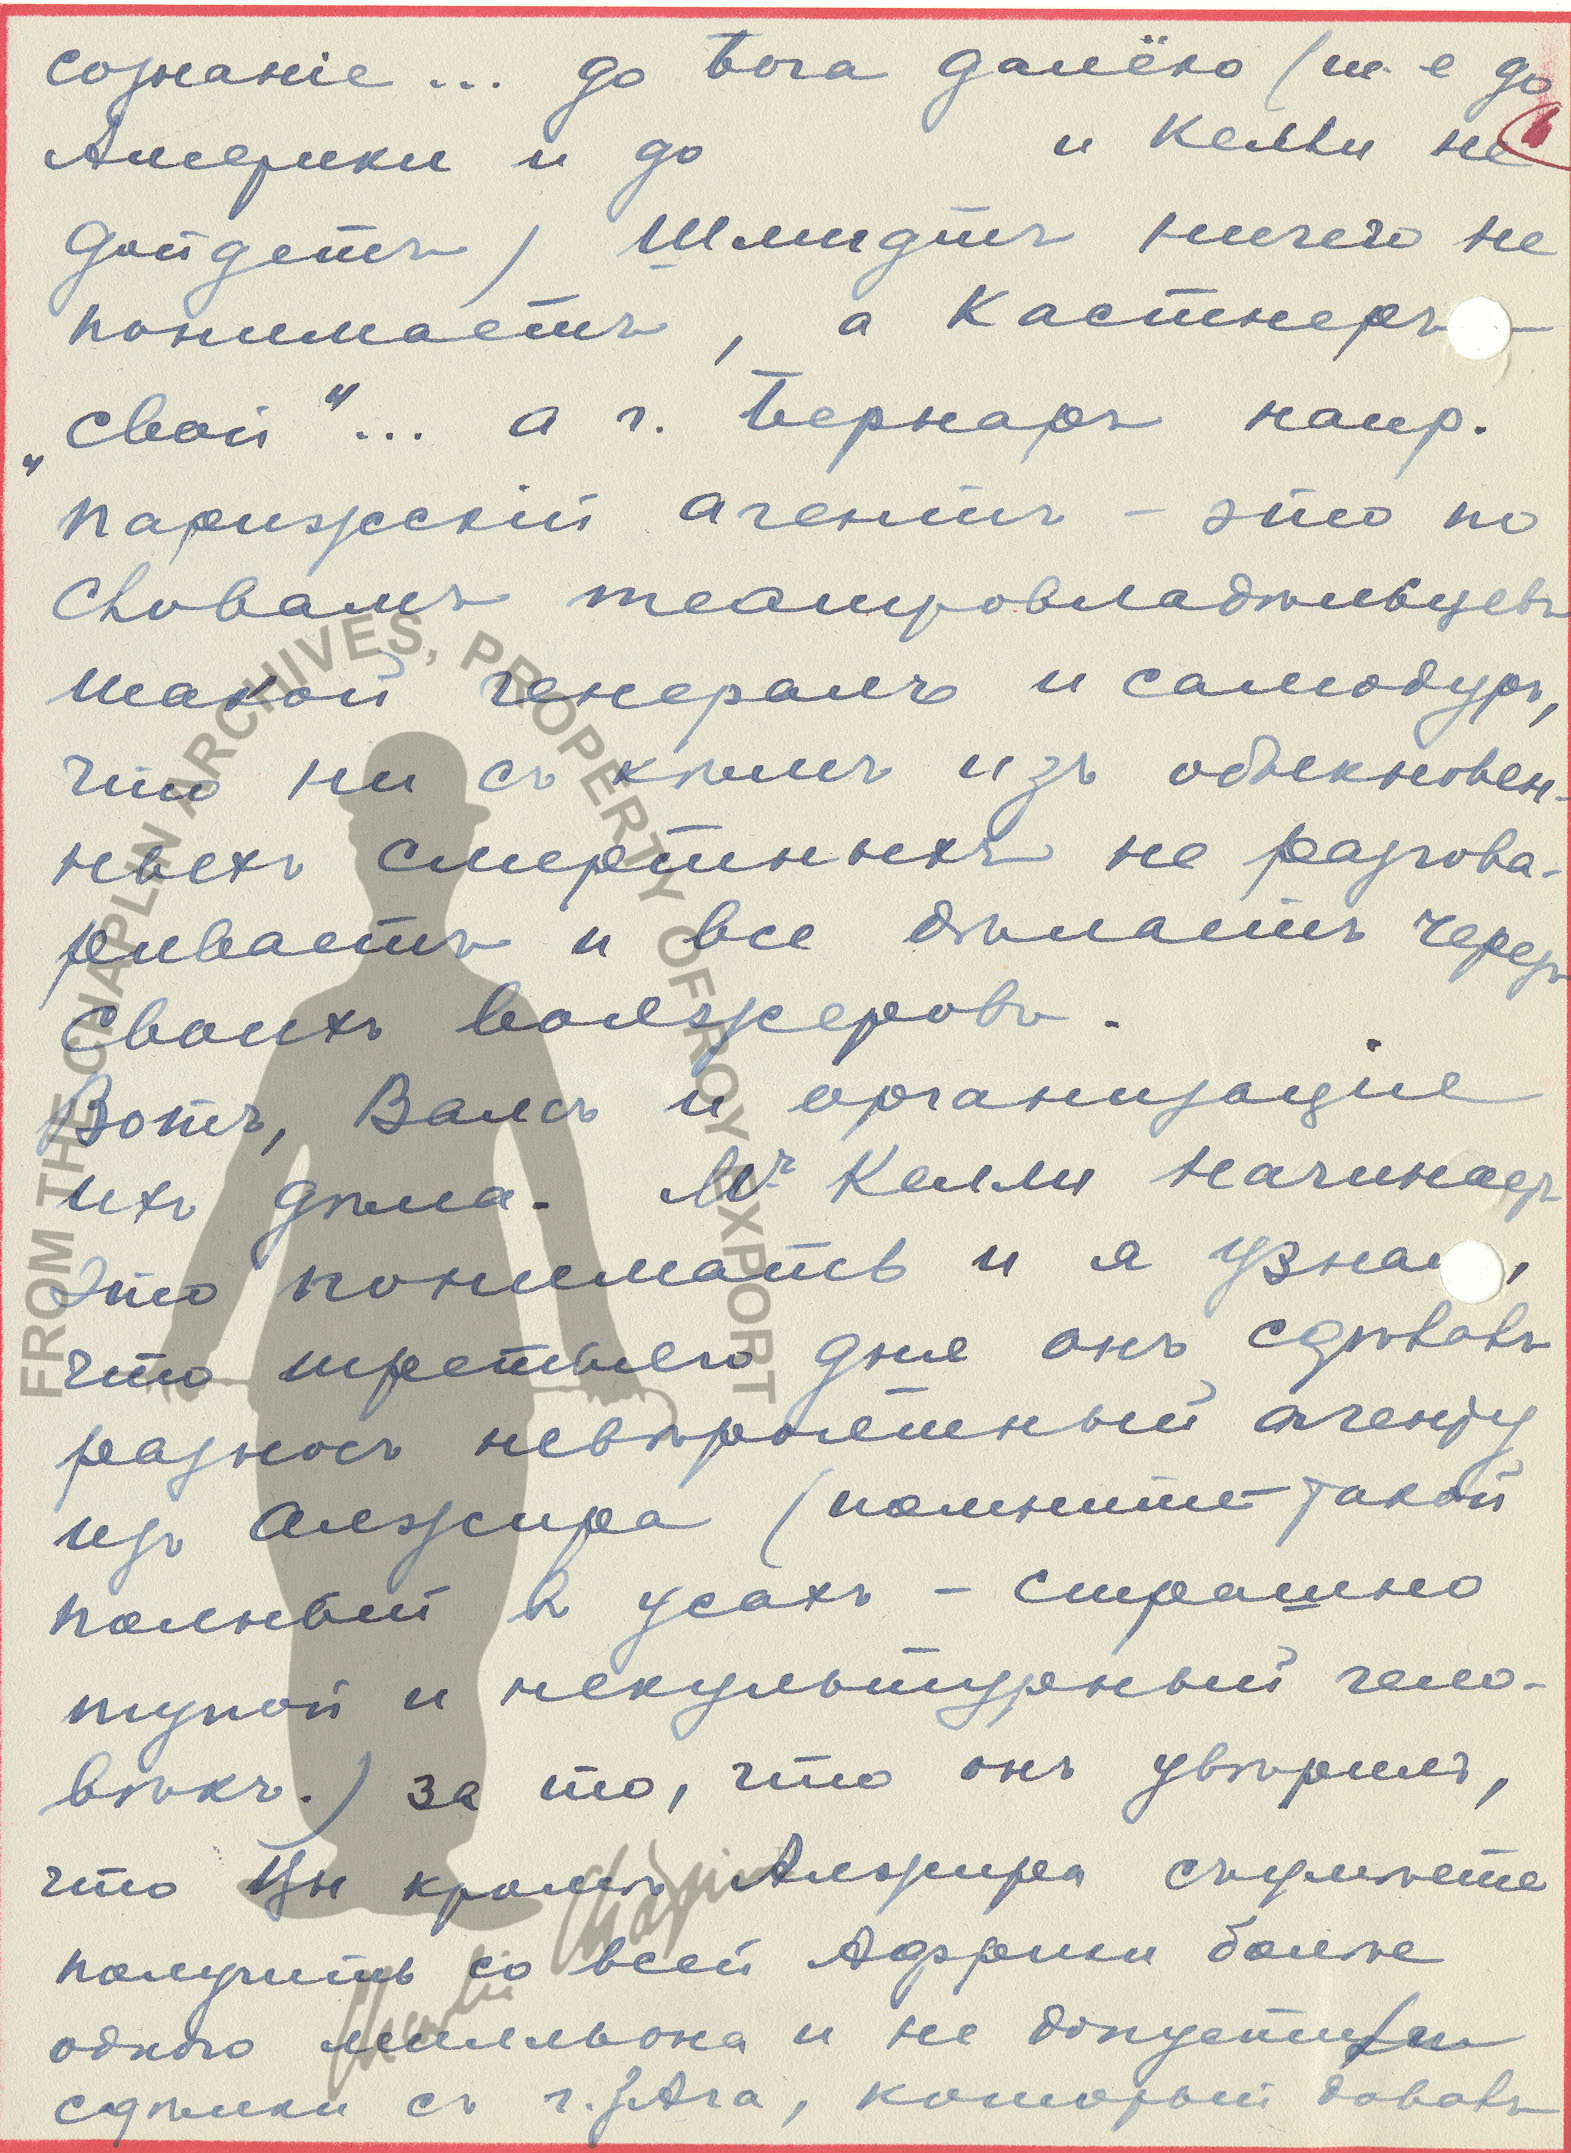 сознаніе ... до Бога далёко (т. е до
Америки и до и Келли не
дойдетъ) Шмидтъ ничего не
понимаетъ, а Кастнеръ -
„свой“... а г. Бернаръ напр.
парижскій агентъ - это по
словамъ театровладѣльцевъ
такой генералъ и самодуръ,
что ни съ кѣмъ изъ обыкновен-
ныхъ смертныхъ не разгова-
риваетъ и все дѣлаетъ черезъ
своихъ вояжеровъ.
Вотъ, Валсъ и организаціе
ихъ дѣла. Mr Келли начинаетъ
это понимать и я узнал,
что третьего дня онъ сдѣлалъ
разносъ невѣроятный агенту
изъ Алжира (помните такой
полный в усахъ - страшно
тупой и некультурный чело-
вѣкъ.) за то, что онъ увѣрилъ,
что Вы кромѣ Алжира съумѣете
получить со всей Африки болѣе
одного милльона и не допустил
сдѣлки съ г. Ага, который давалъ
FROM THE CHAPLIN ARCHIVES, PROPERTY OF ROY EXPORT
Charlie Chaplin